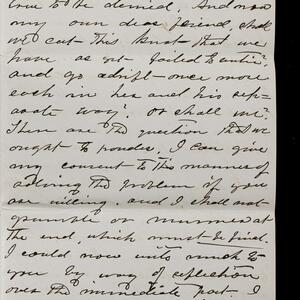 true to be denied. And now
my own dear friend, shall
we cut this knot that we
have as yet failed to untie?
and go adrift once more
each in her and his sep-
arate way? or shall we?
These are the question that we
ought to ponder. I can give
my consent to this manner of
solving the problem if you
are willing and I shall not
grumble or murmer at
the end, which must be final.
I could now write much to
you by way of reflection
over the immediate past I